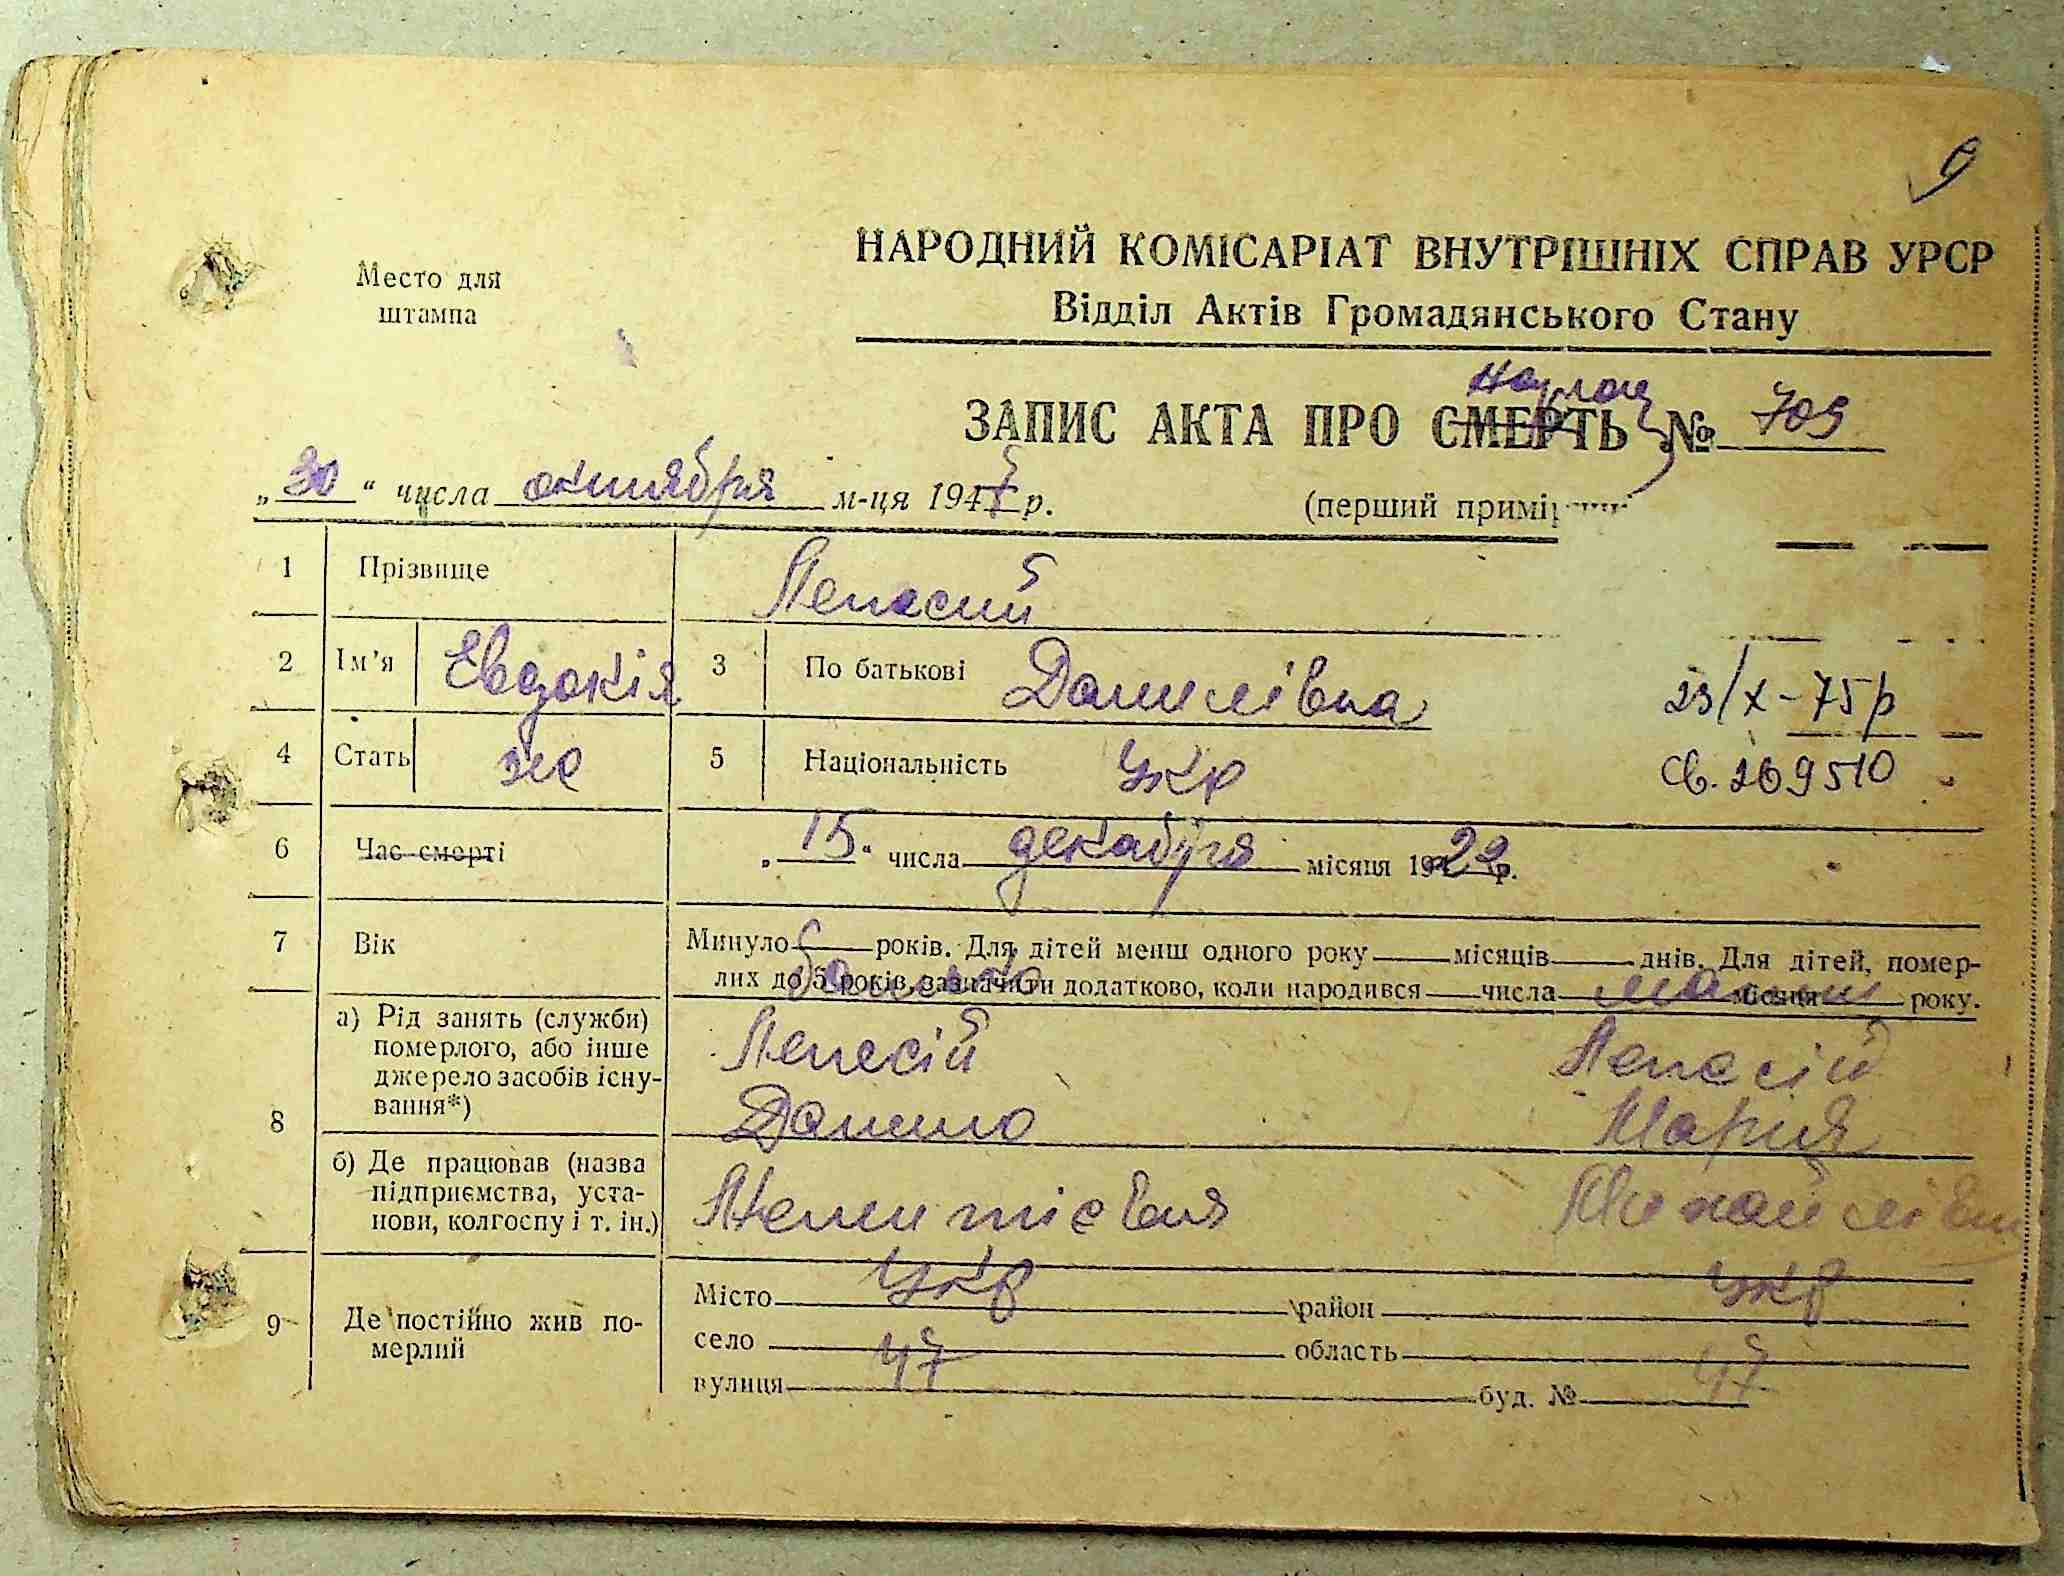 9
НАРОДНИЙ КОМІСАРІАТ ВНУТРІШНІХ СПРАВ УРСР
Відділ Актів Громадянського Стану
Место для
штампа
ЗАПИС АКТА ПРО СМЕРТЬ № 709
„30“ числа октября м-ця 194 р.
(перший примір
1 Прізвище Лепесий
2 Ім'я Евдокія 3 По батькові Данилівна
23/X-75р
4 Стать же 5 Національність Укр
св. 269510
6 Час смерті „15“ числа декабря місяця 1922р.
7 Вік Минуло років. Для дітей менш одного року місяців днів. Для дітей, помер-
лих до 5 років, зазначити додатково, коли народився числа місяця року.
8 а) Рід занять (служби)
померлого, або інше
джерело засобів існу-
вання*)
Лепесій Лепесій
Данило Мария
б) Де працював (назва
підприємства, уста-
нови, колгоспу і т. ін.)
Михайлівна
Укр Укр
9 Де постійно жив по-
мерлий
Місто район
село область
47 47
вулиця буд. №